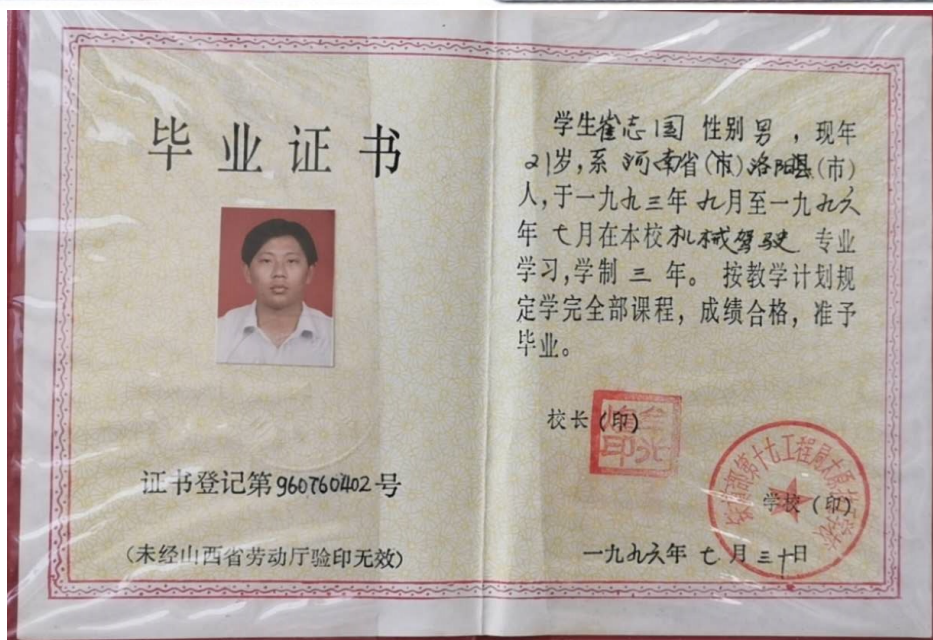 毕业证书
证书登记第960760402号
(未经山西省劳动厅验印无效)
学生崔志国 性别男,现年
21岁,系河南省(市)洛阳县(市)
人,于一九九三年九月至一九九六
年七月在本校机械驾驶 专业
学习,学制三年。按教学计划规
定学完全部课程,成绩合格,准予
毕业。
校长(印)
学校(印)
一九九六年七月三十日